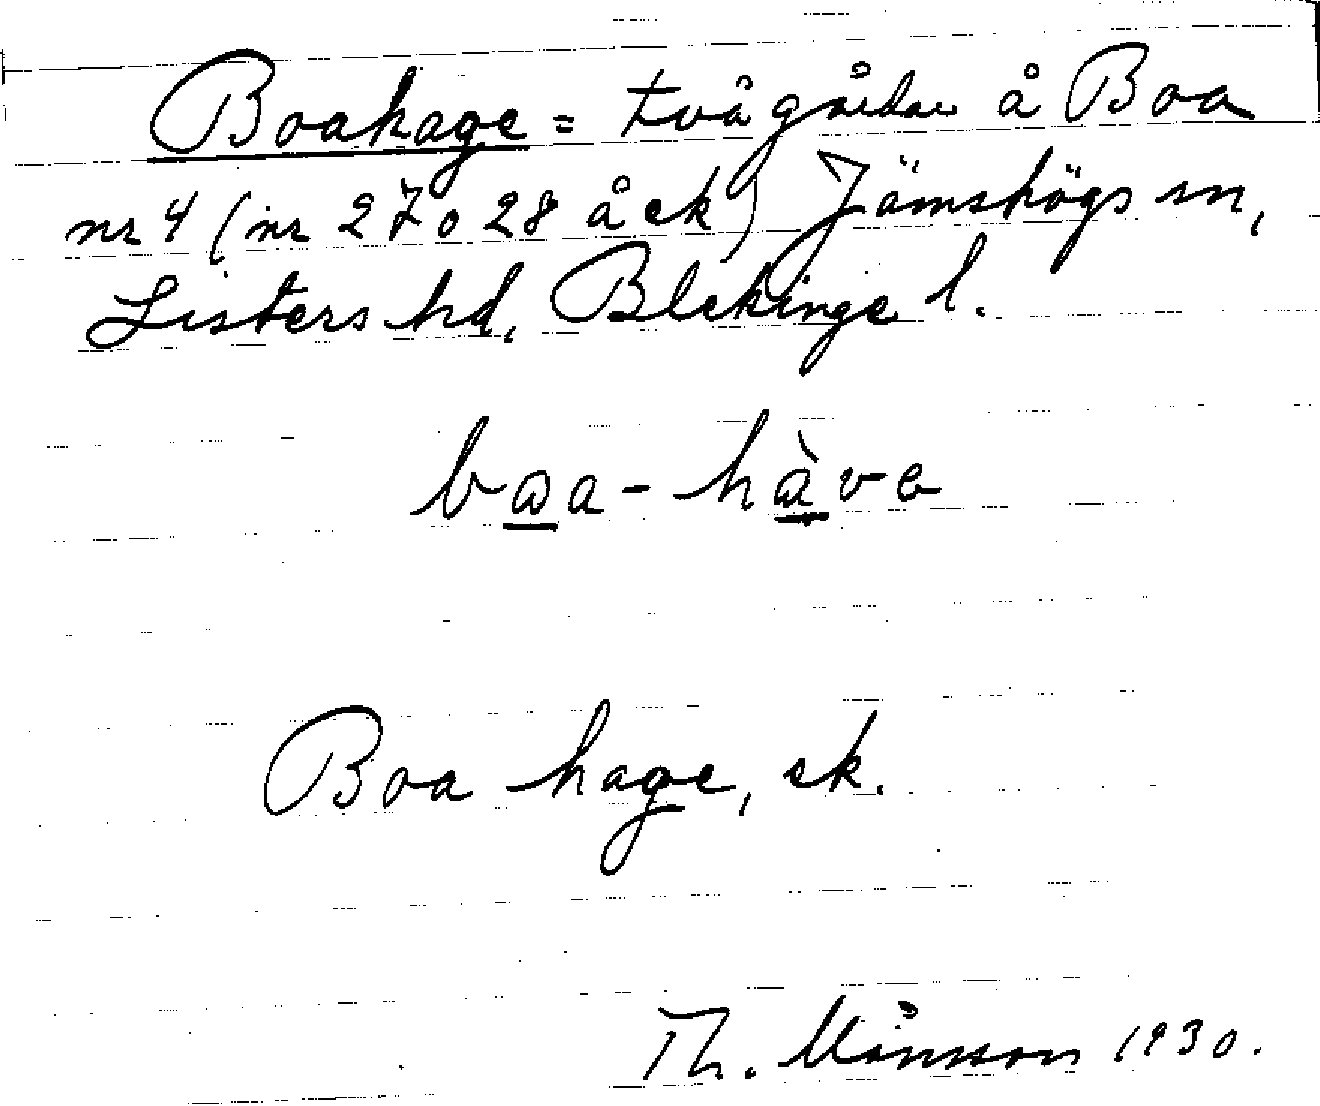 Boahage = två gårdar å Boa
nr 4 (nr 27 o 28 å ek) Jämshögs sn,
Listers hd, Blekinge l.
baa - hàve
Boa hage, ek.
Th. Månsson 1930.